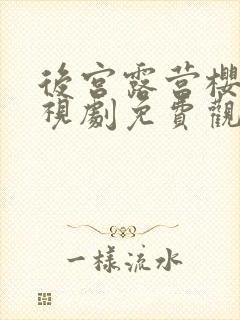 後宮露营櫻
視劇免費觀
一樣流水